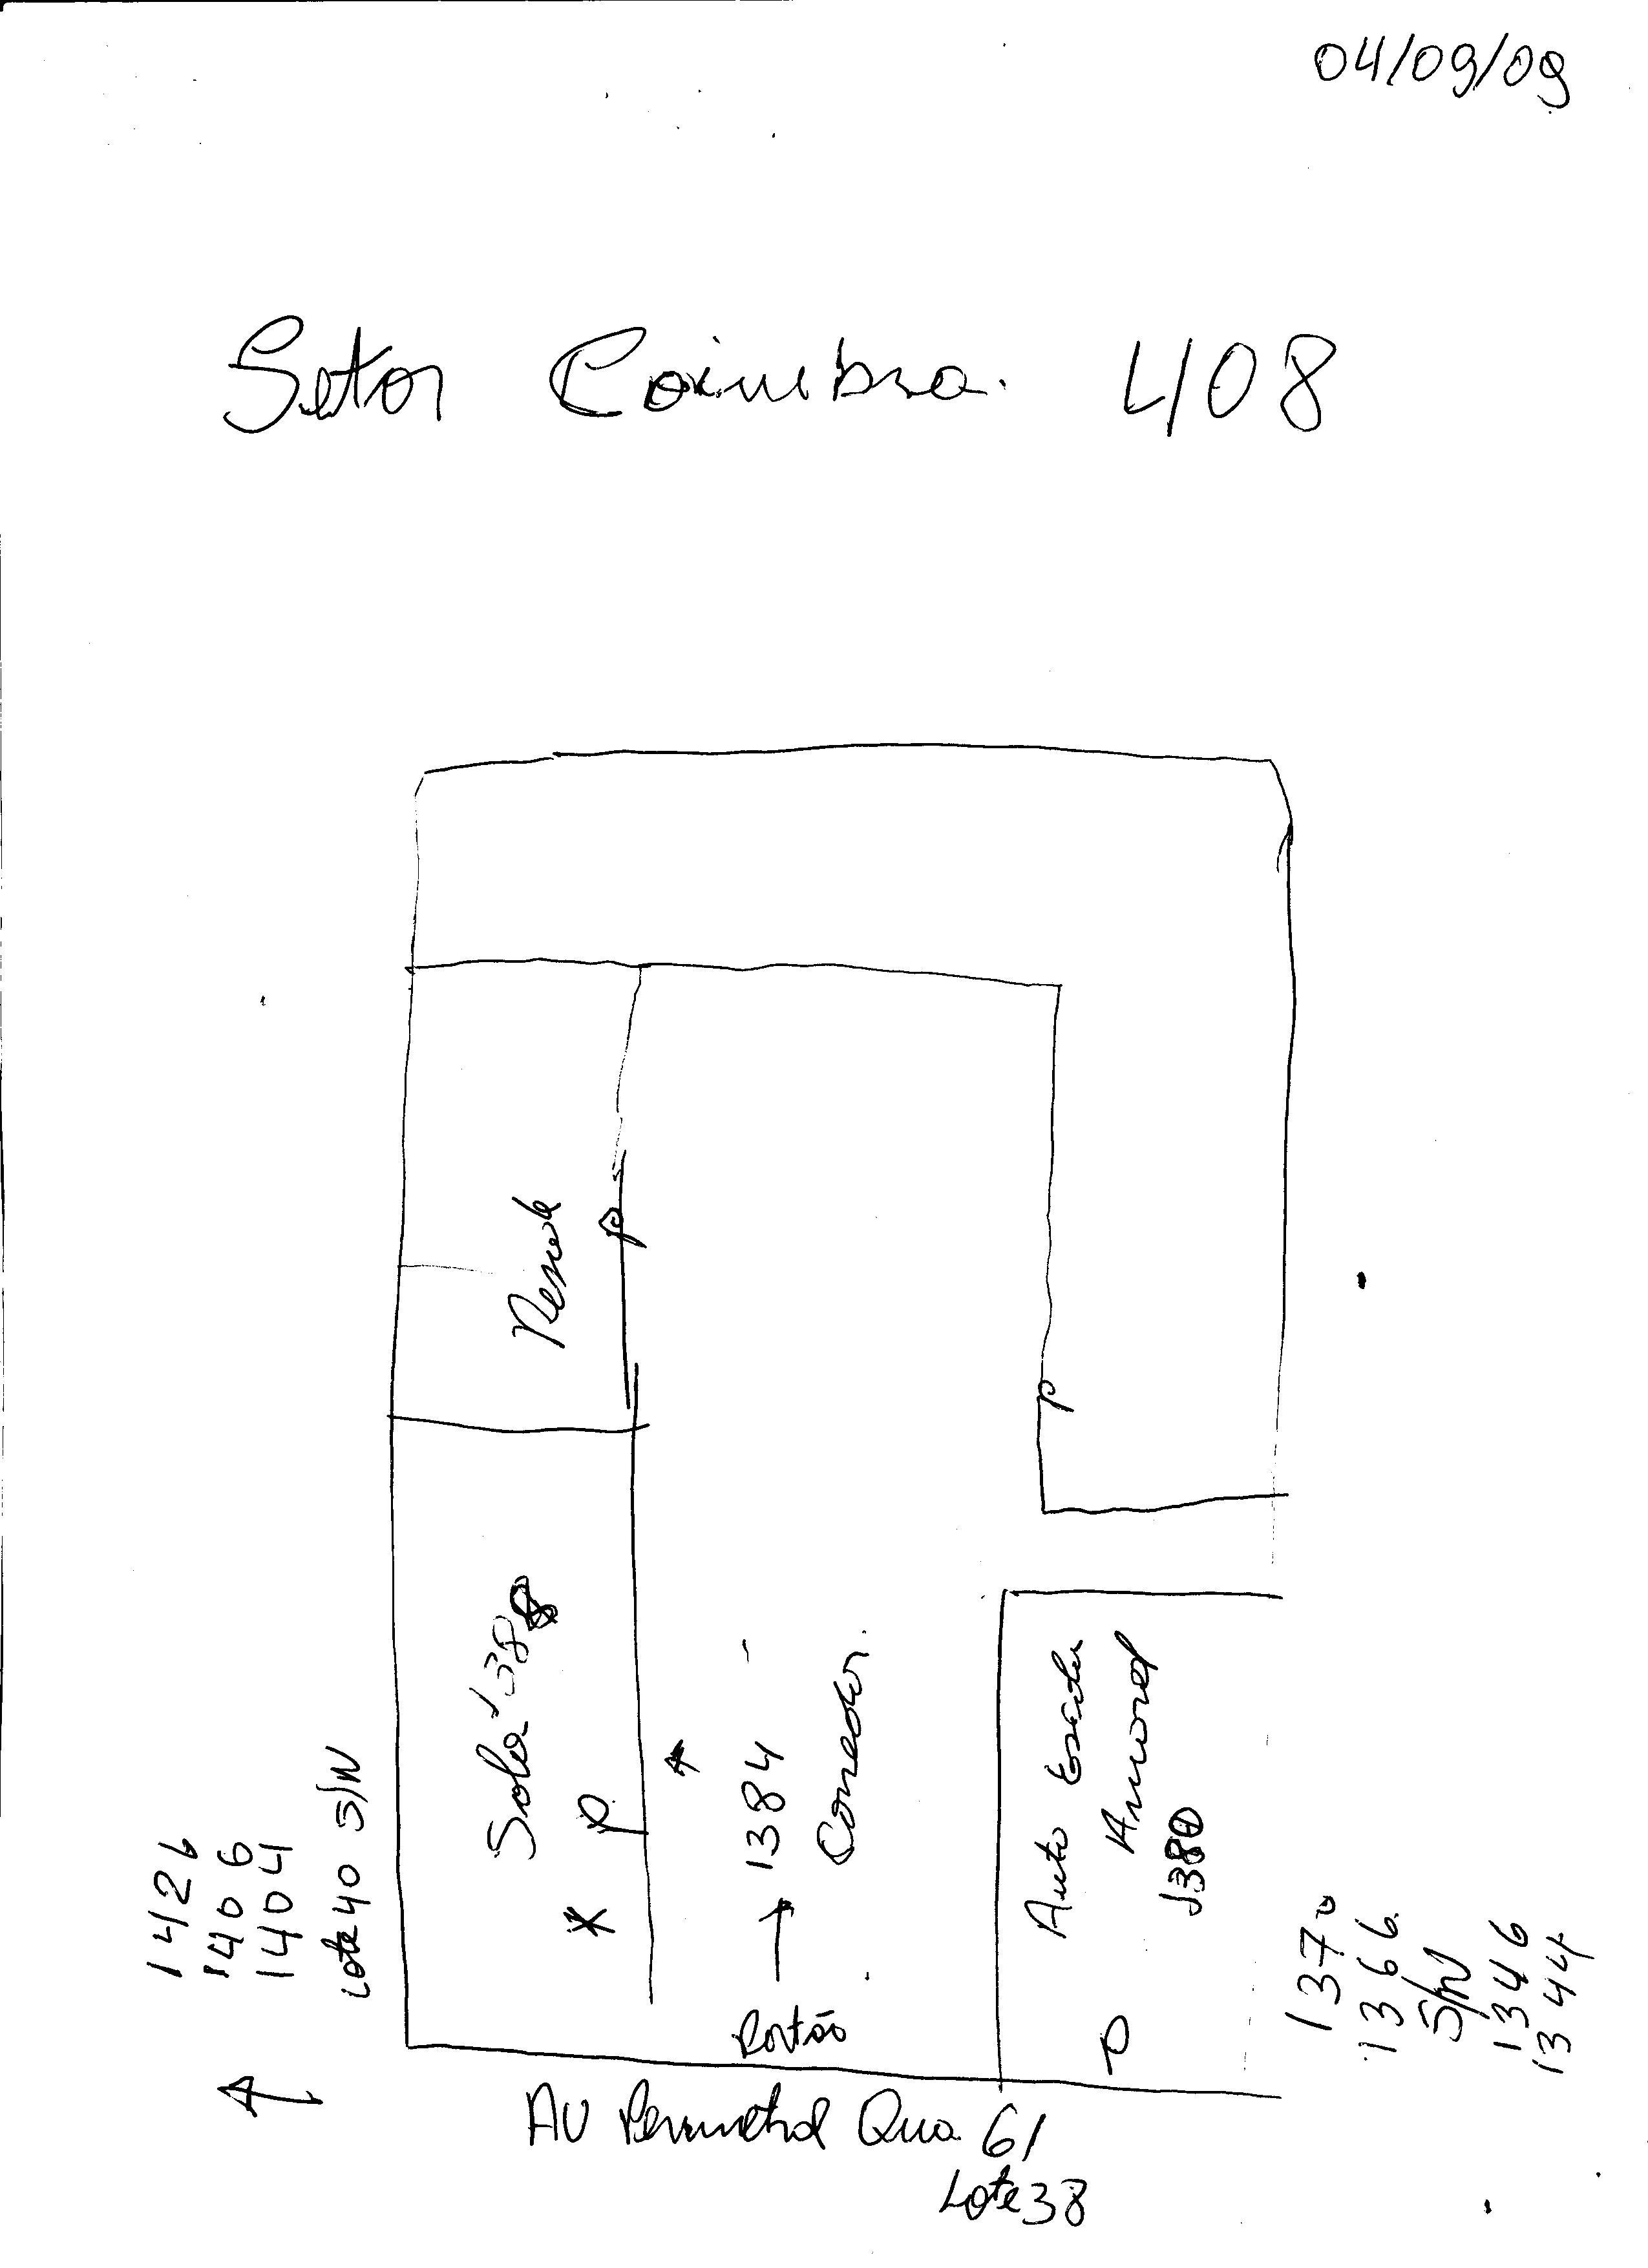 04/09/09
Setor Coimbra. 408
Sala 1388
P
P
P
X
1384
Corredor
Portão
Auto Escola
1380
P
1426
1406
1404
Lote 40 S/N
1370
1366
S/N
1346
1344
AV Perimetral Qua. 61
Lote 38